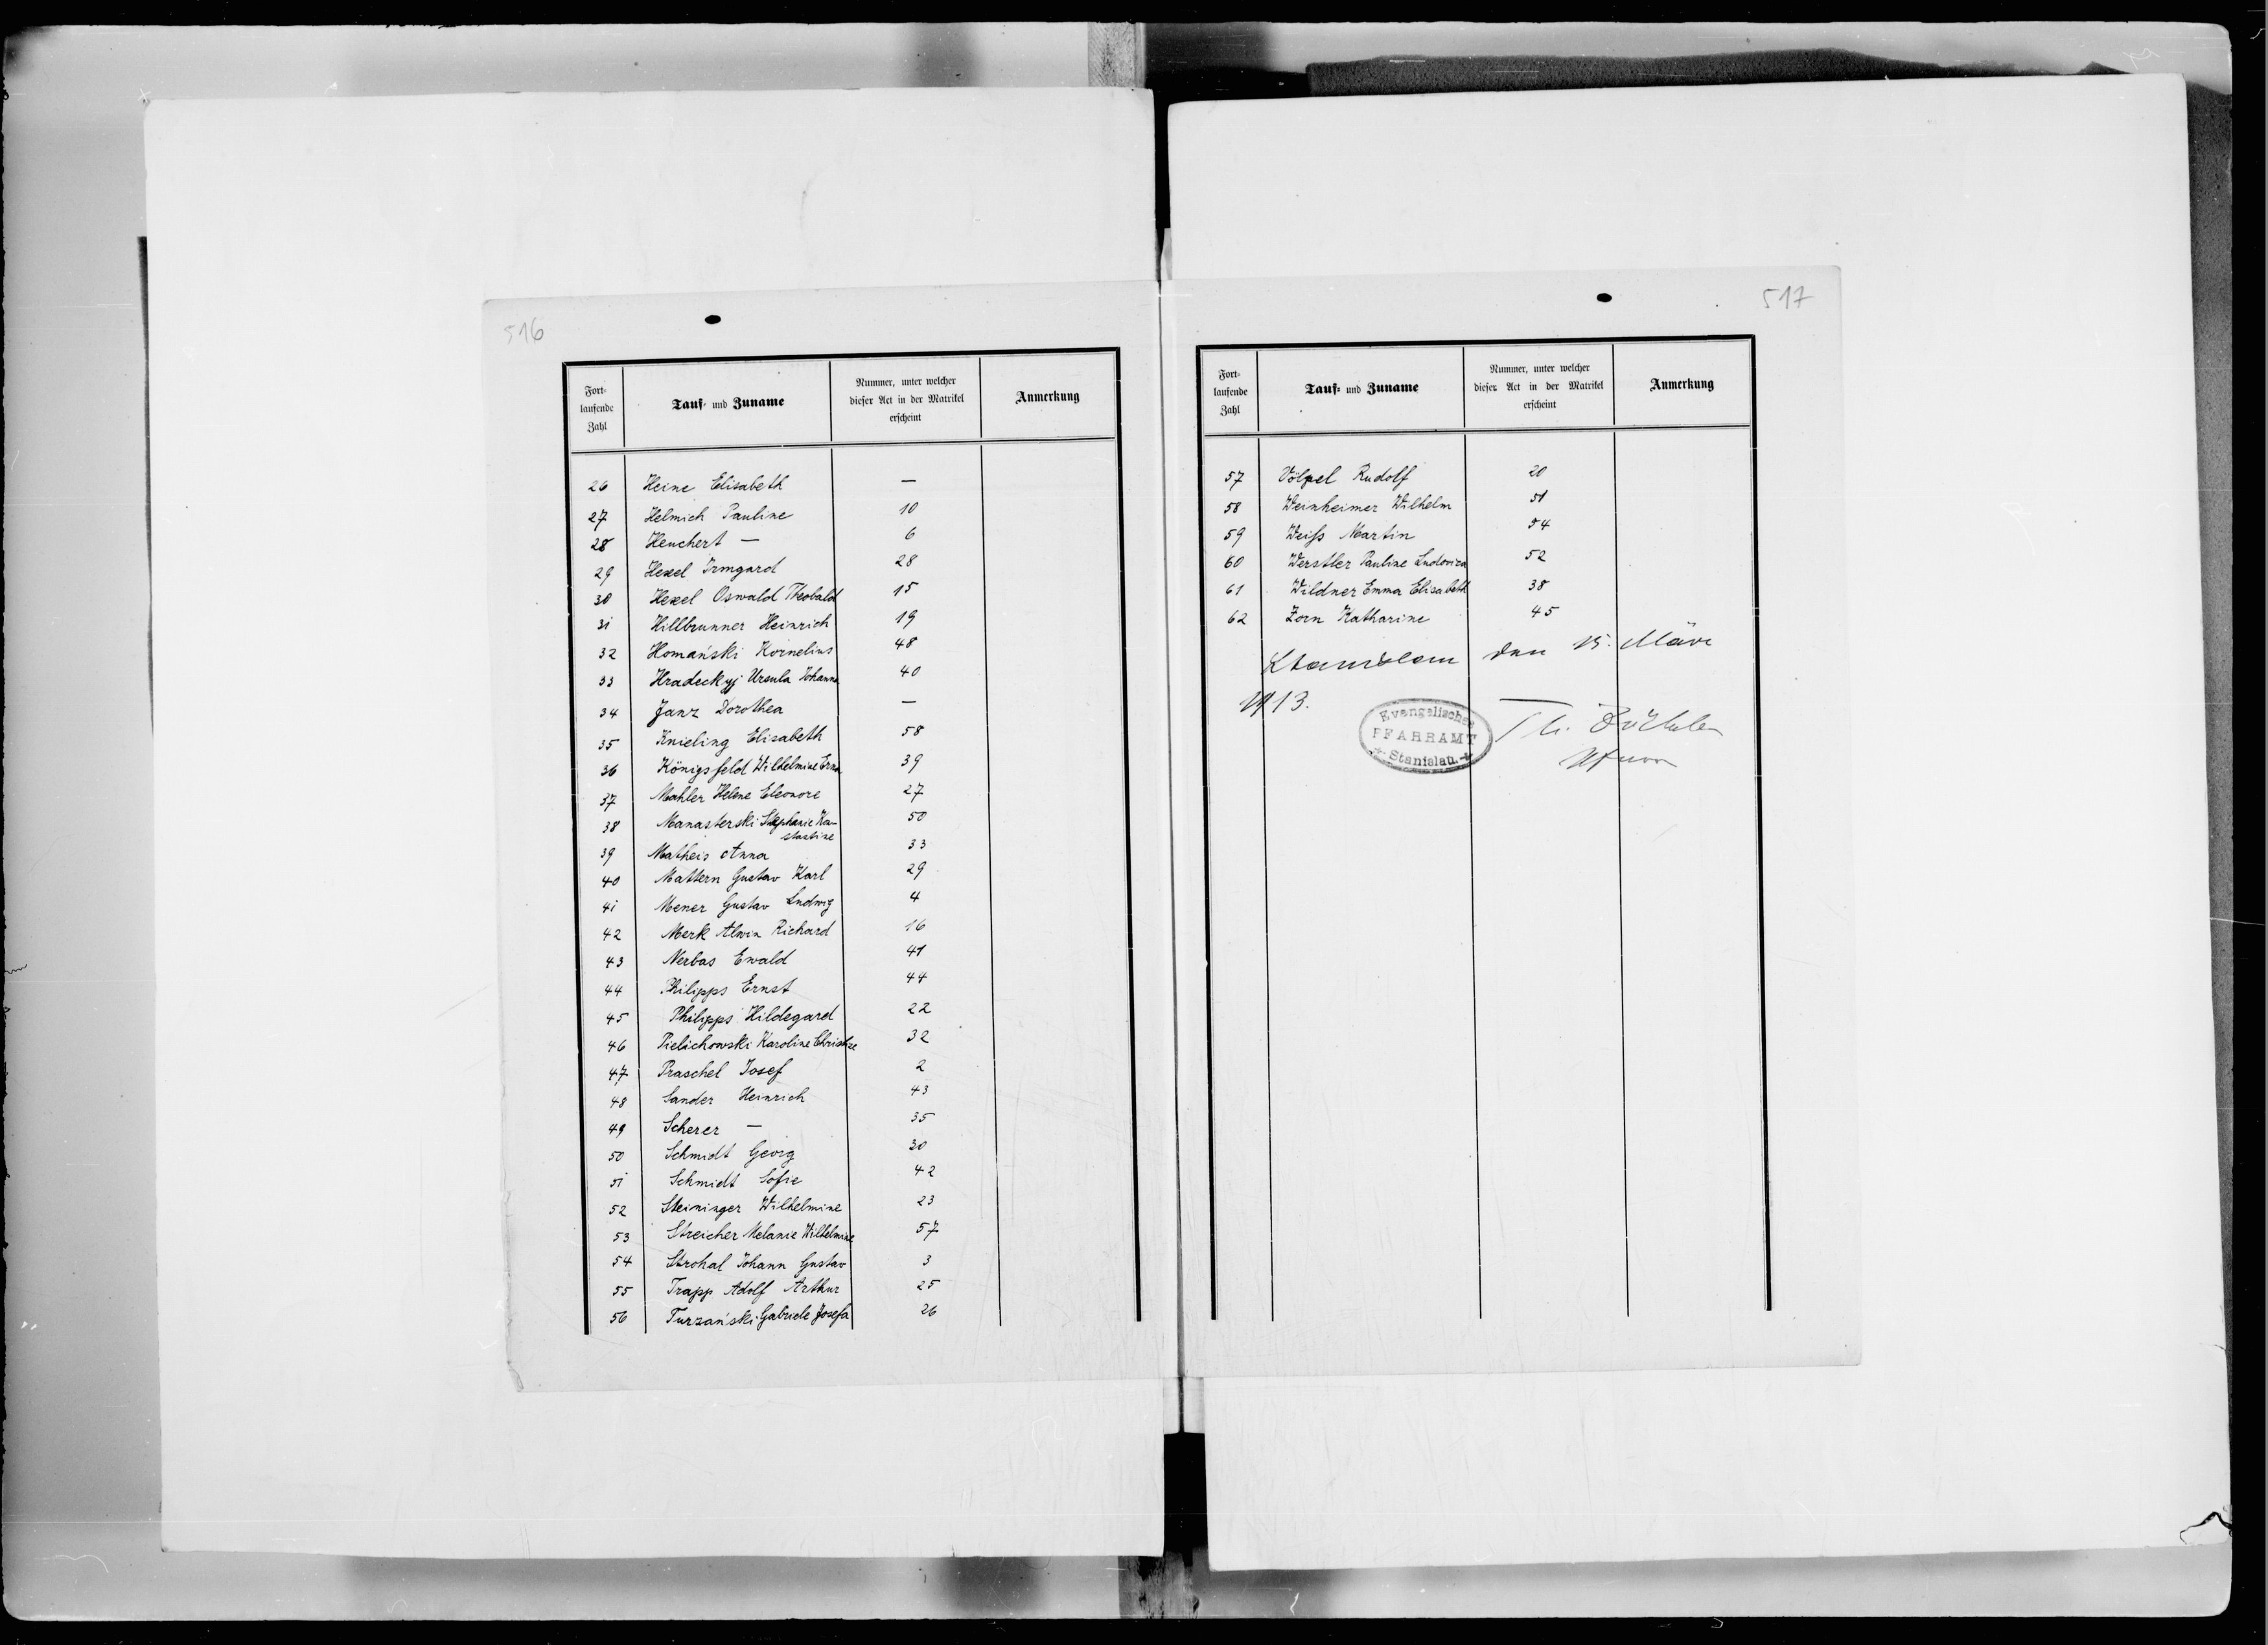 516
Fort-
laufende
Zahl
Tauf- und Zuname
Nummer, unter welcher
dieser Act in der Matrikel
erscheint
Anmerkung
26 Heine Elisabeth —
27 Helmich Pauline 10
28 Heuchert — 6
29 Hexel Irmgard 28
30 Hexel Oswald Theobald 15
31 Hillbrunner Heinrich 19
32 Homański Kornelius 48
33 Hradeckyj Ursula Johanna 40
34 Janz Dorothea —
35 Knieling Elisabeth 58
36 Königsfeld Wilhelmine Erna 39
37 Mahler Helene Eleonore 27
38 Manasterski Stephanie Kon-
stantine 50
39 Matheis Anna 33
40 Mattern Gustav Karl 29
41 Mener Gustav Ludwig 4
42 Merk Alwin Richard 16
43 Nerbas Ewald 41
44 Philipps Ernst 44
45 Philipps Hildegard 22
46 Pielichowski Karoline Christine 32
47 Praschel Josef 2
48 Sander Heinrich 43
49 Scherer — 35
50 Schmidt Georg 30
51 Schmidt Sofie 42
52 Steininger Wilhelmine 23
53 Streicher Melanie Wilhelmine 57
54 Strohal Johann Gustav 3
55 Trapp Adolf Arthur 25
56 Turzański Gabriele Josefa 26
517
Fort-
laufende
Zahl
Tauf- und Zuname
Nummer, unter welcher
dieser Act in der Matrikel
erscheint
Anmerkung
57 Völpel Rudolf 20
58 Weinheimer Wilhelm 51
59 Weiss Martin 54
60 Werstler Pauline Ludovica 52
61 Wildner Emma Elisabeth 38
62 Zorn Katharine 45
Stanislau den 15. März
1913.
Evangelisches
PFARRAMT
Stanislau.
Th.